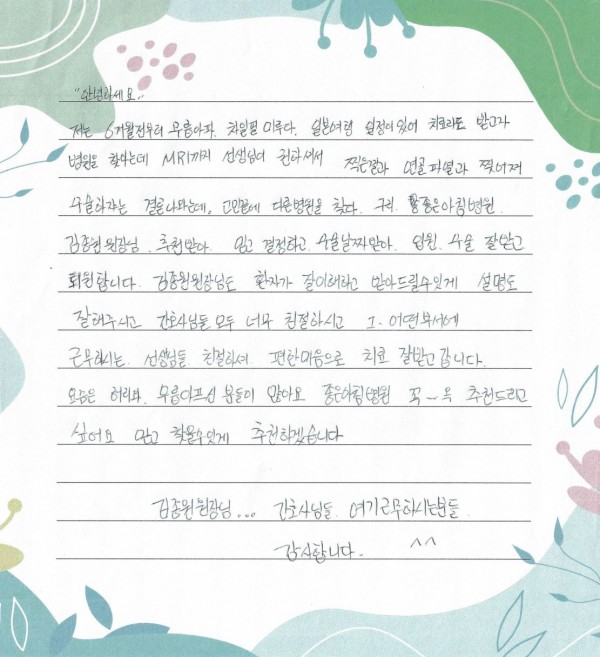 "안녕하세요..
저는 6개월전부터 무릎아파. 차일필 미루다. 일본여행 일정이있어 치료라도 받고자
병원을 찾아는데 MRI까지 선생님이 권하셔서 찍은결과 연골파열과 찢어져
수술하자는 결론나와는데, 고민끝에 다른병원을 찾다. 구리. 좋은아침병원.
김종원원장님. 추천받아. 믿고 결정하고. 수술날짜받아. 입원. 수술 잘받고
퇴원합니다. 김종원원장님도 환자가 잘이해하고 받아드릴수있게 설명도
잘해주시고 간호사님들 모두 너무 친절하시고 그. 어떤부서에
근무하시는. 선생님들. 친절하셔 편한마음으로 치료 잘받고갑니다.
요즘은 허리와. 무릎아프신 분들이 많아요 좋은아침병원 꼭~옥 추천드리고
싶어요 믿고 찾을수있게 추천하겠습니다
김종원원장님... 간호사님들. 여기근무하시는분들.
감사합니다. ^^